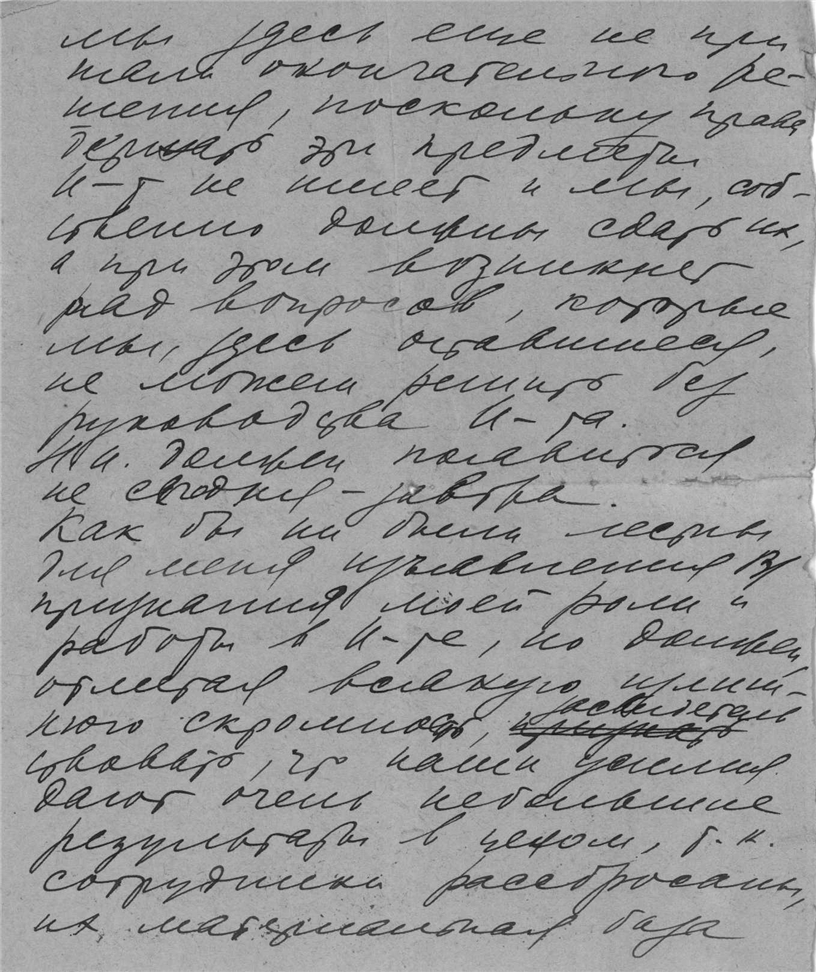 мы здесь еще не при
няли окончательного ре-
шения, поскольку права
держать эти предметы
И-т не имеет и мы, соб-
ственно должны сдать их,
а при этом возникнет
ряд вопросов, которые
мы, здесь оставшиеся,
не можем решить без
руководства И-та.
Н.И. должен появиться
не сегодня-завтра.
Как бы ни были лестны
для меня изъявления Ва
признания моей роли и
работы в И-те, но должен,
отметая всякую излиш-
нюю скромность, признать засвидетель
ствовать, что наши усилия
дают очень небольшие
результаты в целом, т.к.
сотрудники рассбросаны,
их материальная база